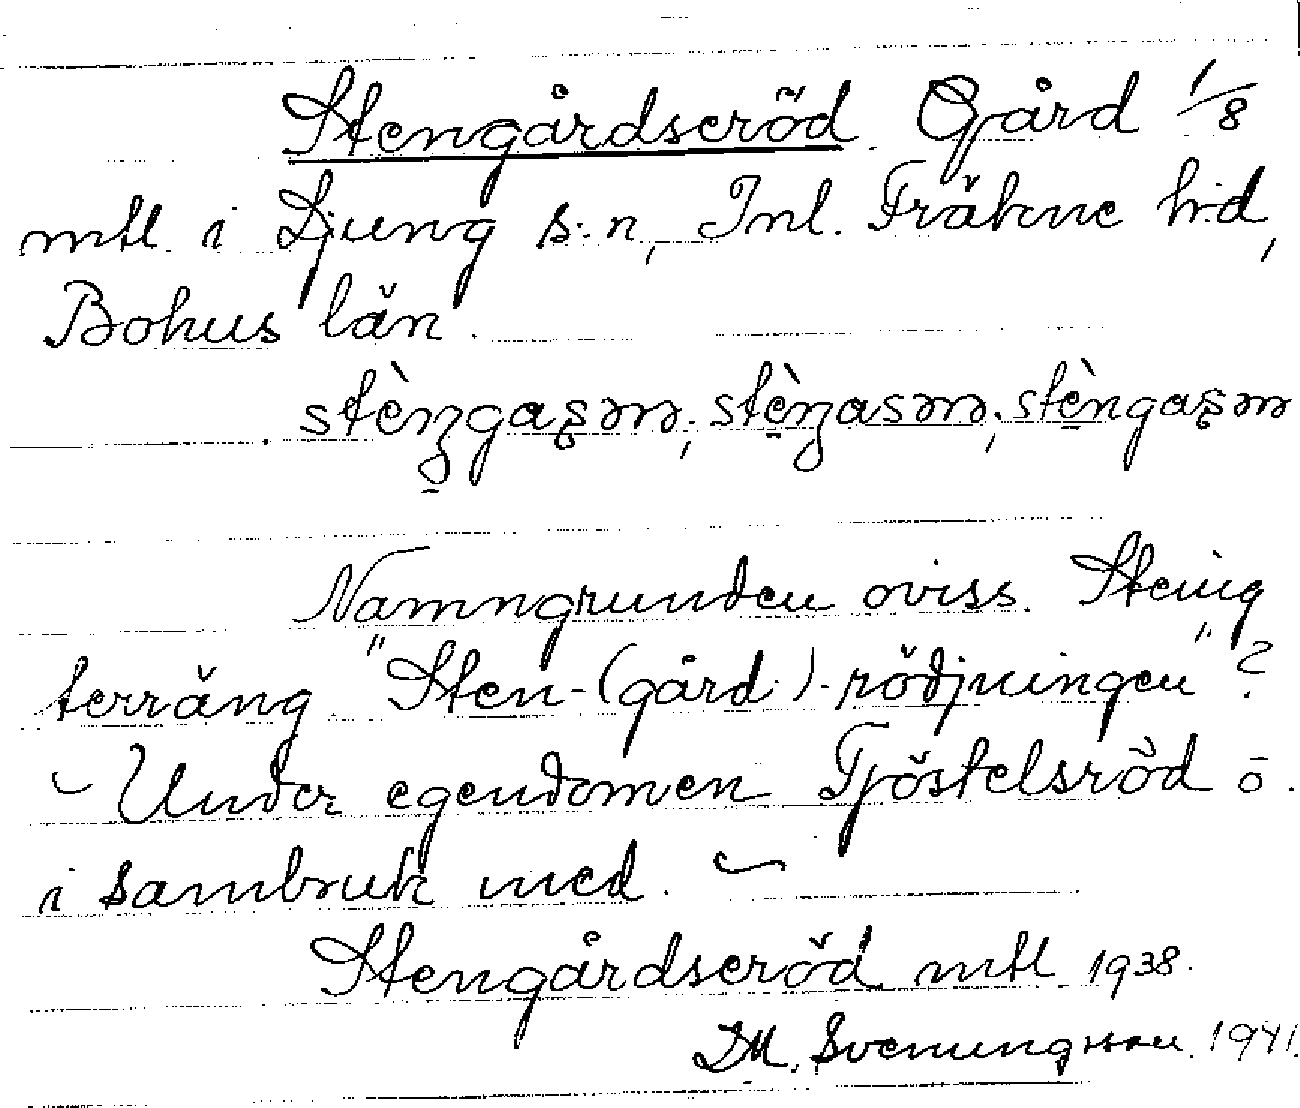 Stengårdseröd Gård 1/8
mtl. i Ljung s:n, Inl. Fräkne h:d,
Bohus län.
Namngrunden oviss. Stenig
terräng "Sten-(gård-)-rödjningen"?
~ Under egendomen Tjöstelsröd o.
i sambruk med. ~
Stengårdseröd mtl 1938.
D.M. Svenungsson. 1941.